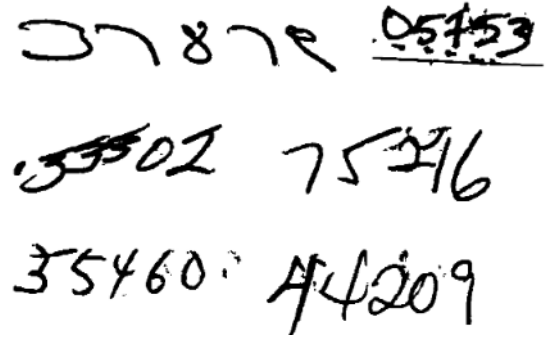 37878 05153
33502 75216
35460 44209